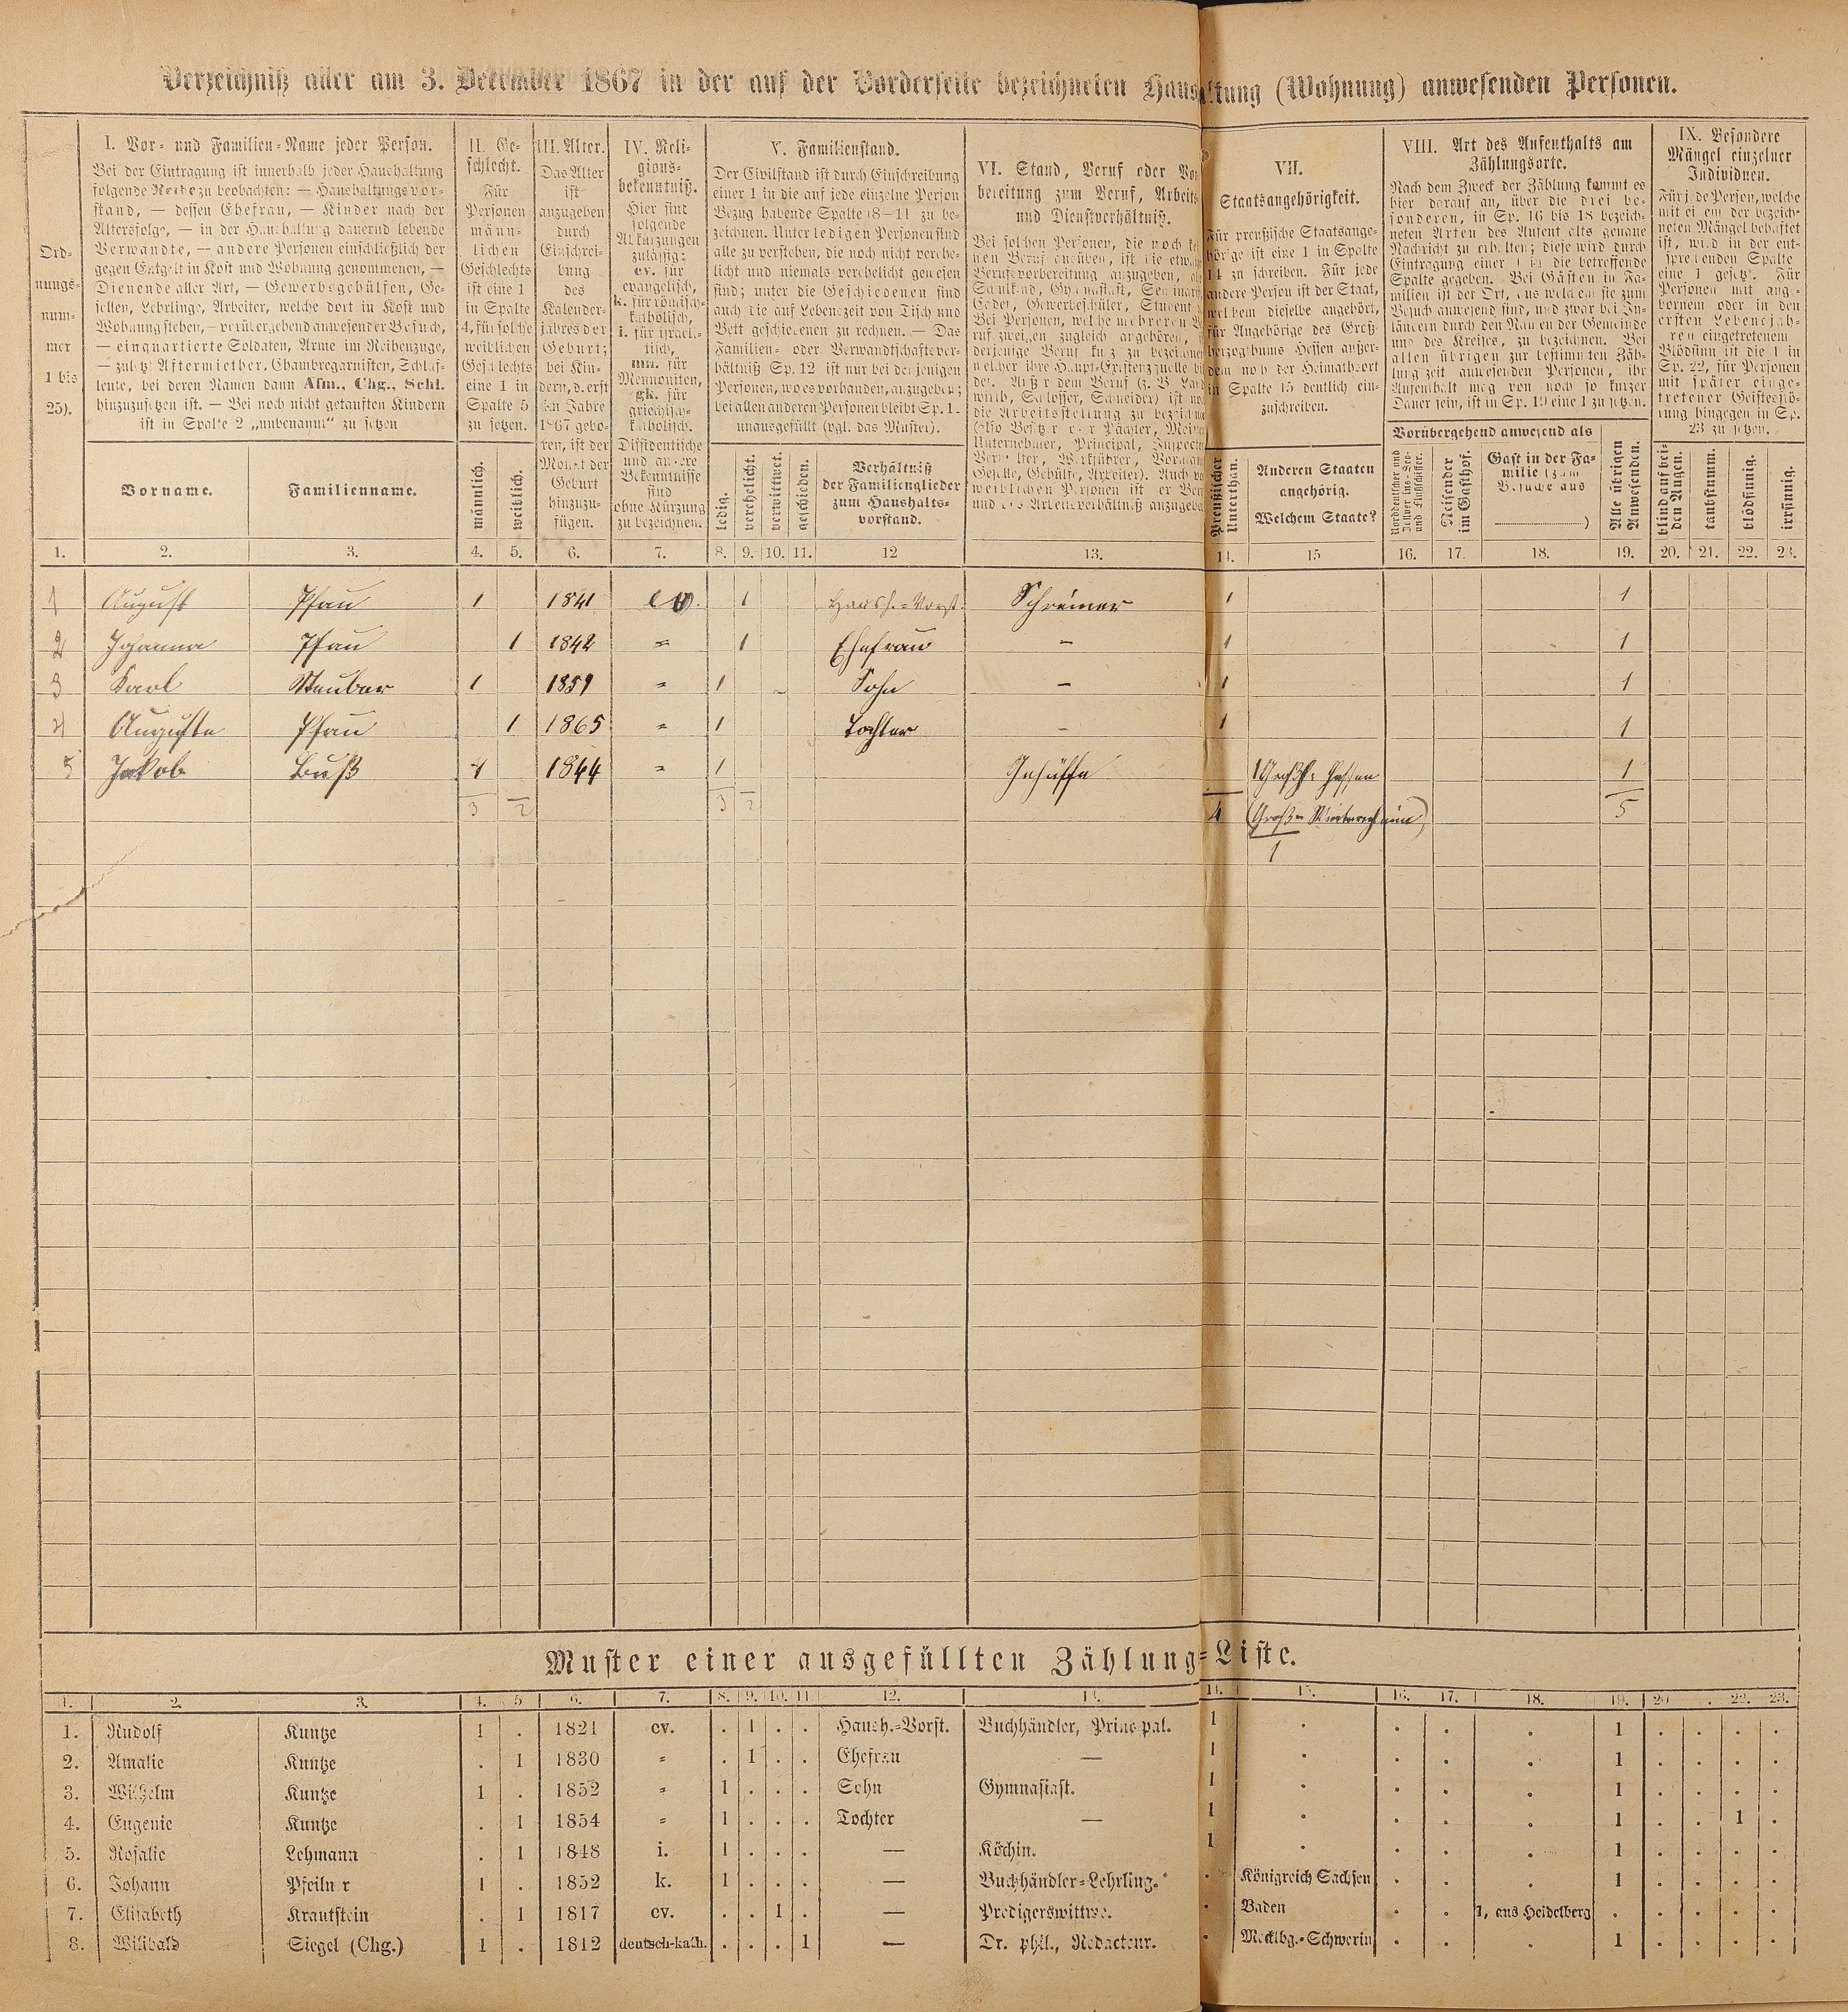 Verzeichniß aller am 3. December 1867 in der auf der Vorderseite bezeichneten Haushaltung (Wohnung) anwesenden Personen.
Ordnungsnummer 1 bis 25).
I. Vor- und Familien-Name jeder Person.
Bei der Eintragung ist innerhalb jeder Haushaltung
folgende Reihe zu beobachten: — Haushaltungsvor-
stand, — dessen Ehefrau, — Kinder nach der
Altersfolge, — in der Haushaltung dauernd lebende
Verwandte, — andere Personen einschließlich der
gegen Entgelt in Kost und Wohnung genommenen, —
Dienende aller Art, — Gewerbsgehülfen, Ge-
sellen, Lehrlinge, Arbeiter, welche dort in Kost und
Wohnung stehen, — vorübergehend anwesender Besuch,
— einquartierte Soldaten, Arme im Reihenzuge,
— zuletzt Aftermiether, Chambregarnisten, Schlaf-
leute, bei deren Namen dann Afm., Chg., Schl.
hinzuzusetzen ist. — Bei noch nicht getauften Kindern
ist in Spalte 2 „unbenannt" zu setzen
Vorname.
Familienname.
II. Ge-
schlecht.
Für
Personen
männ-
lichen
Geschlechts
ist eine 1
in Spalte
4, für solche
weiblichen
Geschlechts
eine 1 in
Spalte 5
zu setzen.
männlich.
weiblich.
III. Alter.
Das Alter
ist
anzugeben
durch
Einschrei-
bung
des
Kalender-
jahres der
Geburt;
bei Kin-
dern, d. erst
im Jahre
1867 gebo-
ren, ist der
Monat der
Geburt
hinzuzu-
fügen.
IV. Reli-
gions-
bekenntniß.
Hier sind
folgende
Abkürzungen
zulässig:
ev. für
evangelisch,
k. für römisch-
katholisch,
i. für israeli-
tisch,
mn. für
Mennoniten,
gk. für
griechisch-
katholisch.
Dissidentische
und andere
Bekenntnisse
sind
ohne Kürzung
zu bezeichnen.
V. Familienstand.
Der Civilstand ist durch Einschreibung
einer 1 in die auf jede einzelne Person
Bezug habende Spalte (8–11 zu be-
zeichnen. Unter ledigen Personen sind
alle zu verstehen, die noch nicht verehe-
licht und niemals verehelicht gewesen
sind; unter die Geschiedenen sind
auch die auf Lebenszeit von Tisch und
Bett geschiedenen zu rechnen. — Das
Familien- oder Verwandtschaftsver-
hältniß Sp. 12 ist nur bei denjenigen
Personen, wo es vorhanden, anzugeben;
bei allen anderen Personen bleibt Sp. 12
unausgefüllt (vgl. das Muster).
ledig.
verehelicht.
verwittwet.
geschieden.
Verhältniß
der Familienglieder
zum Haushalts-
vorstand.
VI. Stand, Beruf oder Vor
bereitung zum Beruf, Arbeits
und Dienstverhältniß.
Bei solchen Personen, die noch
nen Beruf ausüben, ist die
Berufsvorbereitung anzugeben,
Schulkind, Gymnasiast,
Cadet, Gewerbeschüler, Student
Bei Personen, welche mehreren
ruf zweigen zugleich angehören,
derjenige Beruf kurz zu
welcher ihre Haupt-Existenzquelle
det. Außer dem Beruf (z. B.
wirth, Schlosser, Schneider) ist
die Arbeitsstellung zu
(also Besitzer oder Pächter,
Unternehmer, Principal,
Verwalter, Werkführer,
Geselle, Gehülfe, Arbeiter). Auch
weiblichen Personen ist der
und das Arbeitsverhältniß
VII.
Staatsangehörigkeit.
Für preußische Staatsange-
hörige ist eine 1 in Spalte
14 zu schreiben. Für jede
andere Person ist der Staat,
welchem dieselbe angehört,
für Angehörige des Groß-
herzogthums Hessen außer-
dem noch der Heimathsort
in Spalte 15 deutlich ein-
zuschreiben.
Preußischer
Unterthan.
Anderen Staaten
angehörig.
Welchem Staate?
VIII. Art des Aufenthalts am
Zählungsorte.
Nach dem Zweck der Zählung kommt es
hier darauf an, über die drei be-
sonderen, in Sp. 16 bis 18 bezeich-
neten Arten des Aufenthalts genaue
Nachricht zu erhalten; diese wird durch
Eintragung einer 1 in die betreffende
Spalte gegeben. Bei Gästen in Fa-
milien ist der Ort, aus welchem sie zum
Besuch anwesend sind, und zwar bei In-
ländern durch den Namen der Gemeinde
und des Kreises, zu bezeichnen. Bei
allen übrigen zur bestimmten Zäh-
lungszeit anwesenden Personen, ihr
Aufenthalt mag von noch so kurzer
Dauer sein, ist in Sp. 19 eine 1 zu setzen.
Vorübergehend anwesend als
Norddeutscher und
Zollverins-See-
und Flußschiffer.
Reisender
im Gasthof.
Gast in der Fa-
milie (zum
Besuche aus
)
Alle übrigen
Anwesenden.
IX. Besondere
Mängel einzelner
Individuen.
Für jede Person, welche
mit einem der bezeich-
neten Mängel behaftet
ist, wird in der ent-
sprechenden Spalte
eine 1 gesetzt. Für
Personen mit ange-
bornem oder in den
ersten Lebensjah-
ren eingetretenem
Blödsinn ist die 1 in
Sp. 22, für Personen
mit später einge-
tretener Geistesstö-
rung hingegen in Sp.
23 zu setzen.
blind auf bei-
den Augen.
taubstumm.
blödsinnig.
irrsinnig.
1. 2. 3. 4. 5. 6. 7. 8. 9. 10. 11. 12 13. 14. 15 16. 17. 18. 19. 20. 21. 22. 23.
1 August Pfau 1 1841 ev. 1 Haush.=Vorst. Schreiner 1 1
2 Johanna Pfau 1 1842 " 1 Ehefrau – 1 1
3 Karl 1 1859 " 1 Sohn – 1 1
4 Auguste Pfau 1 1865 " 1 Tochter – 1 1
5 Jakob Buß 1 1844 " 1 Gehülfe 1 Großh. Hessen 1
3 2 3 2 4 (Groß= 5
1
Muster einer ausgefüllten Zählung=Liste.
1. 2. 3. 4. 5 6. 7. 8. 9. 10. 11 12. 13. 14. 15. 16. 17. 18. 19. 20 . 22. 23.
1. Rudolf Kuntze 1 . 1821 ev. . 1 . . Haush.=Vorst. Buchhändler, Principal. 1 . . . . 1 . . . .
2. Amalie Kuntze . 1 1830 " . 1 . . Ehefrau — 1 . . . . 1 . . . .
3. Wilhelm Kuntze 1 . 1852 " 1 . . . Sohn Gymnasiast. 1 . . . . 1 . . . .
4. Eugenie Kuntze . 1 1854 " 1 . . . Tochter — 1 . . . . 1 . . 1 .
5. Rosalie Lehmann . 1 1848 i. 1 . . . — Köchin. 1 . . . . 1 . . . .
6. Johann Pfeilner 1 . 1852 k. 1 . . . — Buchhändler=Lehrling. . Königreich Sachsen . . . 1 . . . .
7. Elisabeth Krautstein . 1 1817 ev. . . 1 . — Predigerswittwe. . Baden . . 1, aus Heidelberg . . . . .
8. Wilibald Siegel (Chg.) 1 . 1812 deutsch-kath. . . . 1 — Dr. phil., Redacteur. . Mecklbg.=Schwerin . . . 1 . . . .